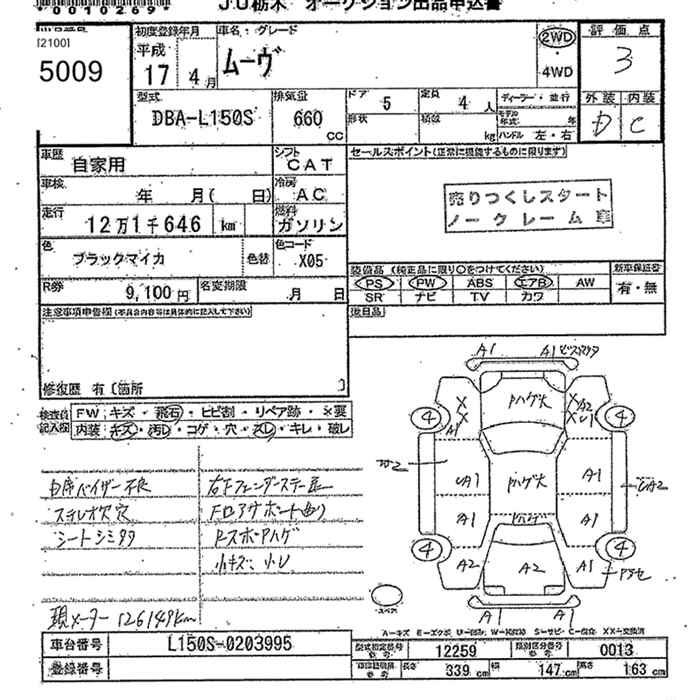 00102697
JU栃木 オークション出品申込書
[2100]
5009
初度登録年月
平成
17 4月
車名・グレード
ムーヴ
2WD
4WD
評価点
3
外装 内装
D C
型式
DBA-L150S
排気量
660 cc
ドア
5
定員
4人
形状
積数 kg
ディーラー・並行
モデル年式 年
ハンドル 左・右
車歴
自家用
シフト
CAT
車検
年 月( 日)
冷房
AC
走行
12万1千646 km
燃料
ガソリン
色
ブラックマイカ
色替
色コード
X05
R券
9,100円
名変期限
月 日
セールスポイント(正常に機能するものに限ります)
売りつくしスタート
ノークレーム車
装備品(純正品に限り○をつけてください)
PS PW ABS エアB AW
SR ナビ TV カワ
新車保証書
有・無
後日品
注意事項申告欄(不具合内容等は具体的に記入して下さい)
修復歴 有〔箇所 〕
検査員記入欄
FW キズ・飛石・ヒビ割・リペア跡・×要
内装 キズ・汚レ・コゲ・穴・スレ・キレ・破レ
内席バイザー不良
ステレオ欠穴
シートシミタタ
小キズ 小レ
現メーター126149km
A1 A1
ハゲ大
X X A1
X A2
4 4
A1
ハゲ大
A1 A1
ハゲ
4 4
A2 A2 A1
A1 A1
スペア
A-キズ E-エクボ U-凹み W-波凹跡 S-サビ C-腐食 XX-交換済
車台番号
L150S-0203995
登録番号
型式指定番号 参考
12259
類別区分番号 参考
0013
長さ 339 cm 幅 147 cm 高さ 163 cm